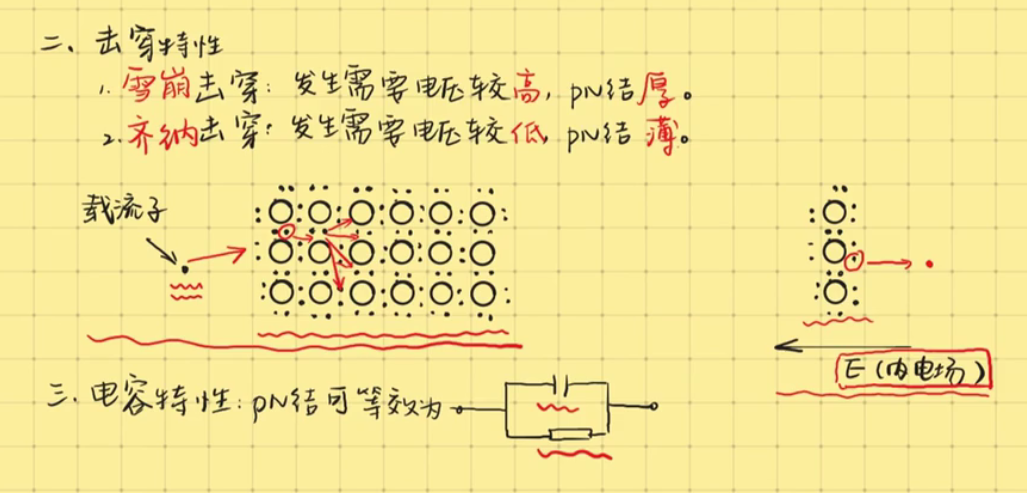 二、击穿特性
1. 雪崩击穿：发生需要电压较高，pN结厚。
2. 齐纳击穿：发生需要电压较低，pN结薄。
载流子
E（内电场）
三、电容特性：pN结可等效为